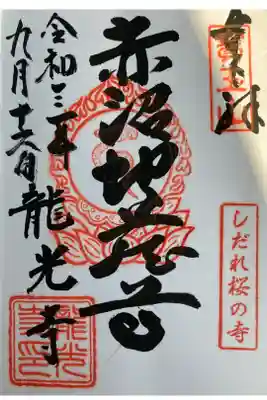 奉拝
しだれ桜の寺
赤沼地蔵尊
令和三年
九月十六日
龍光寺
龍光寺印